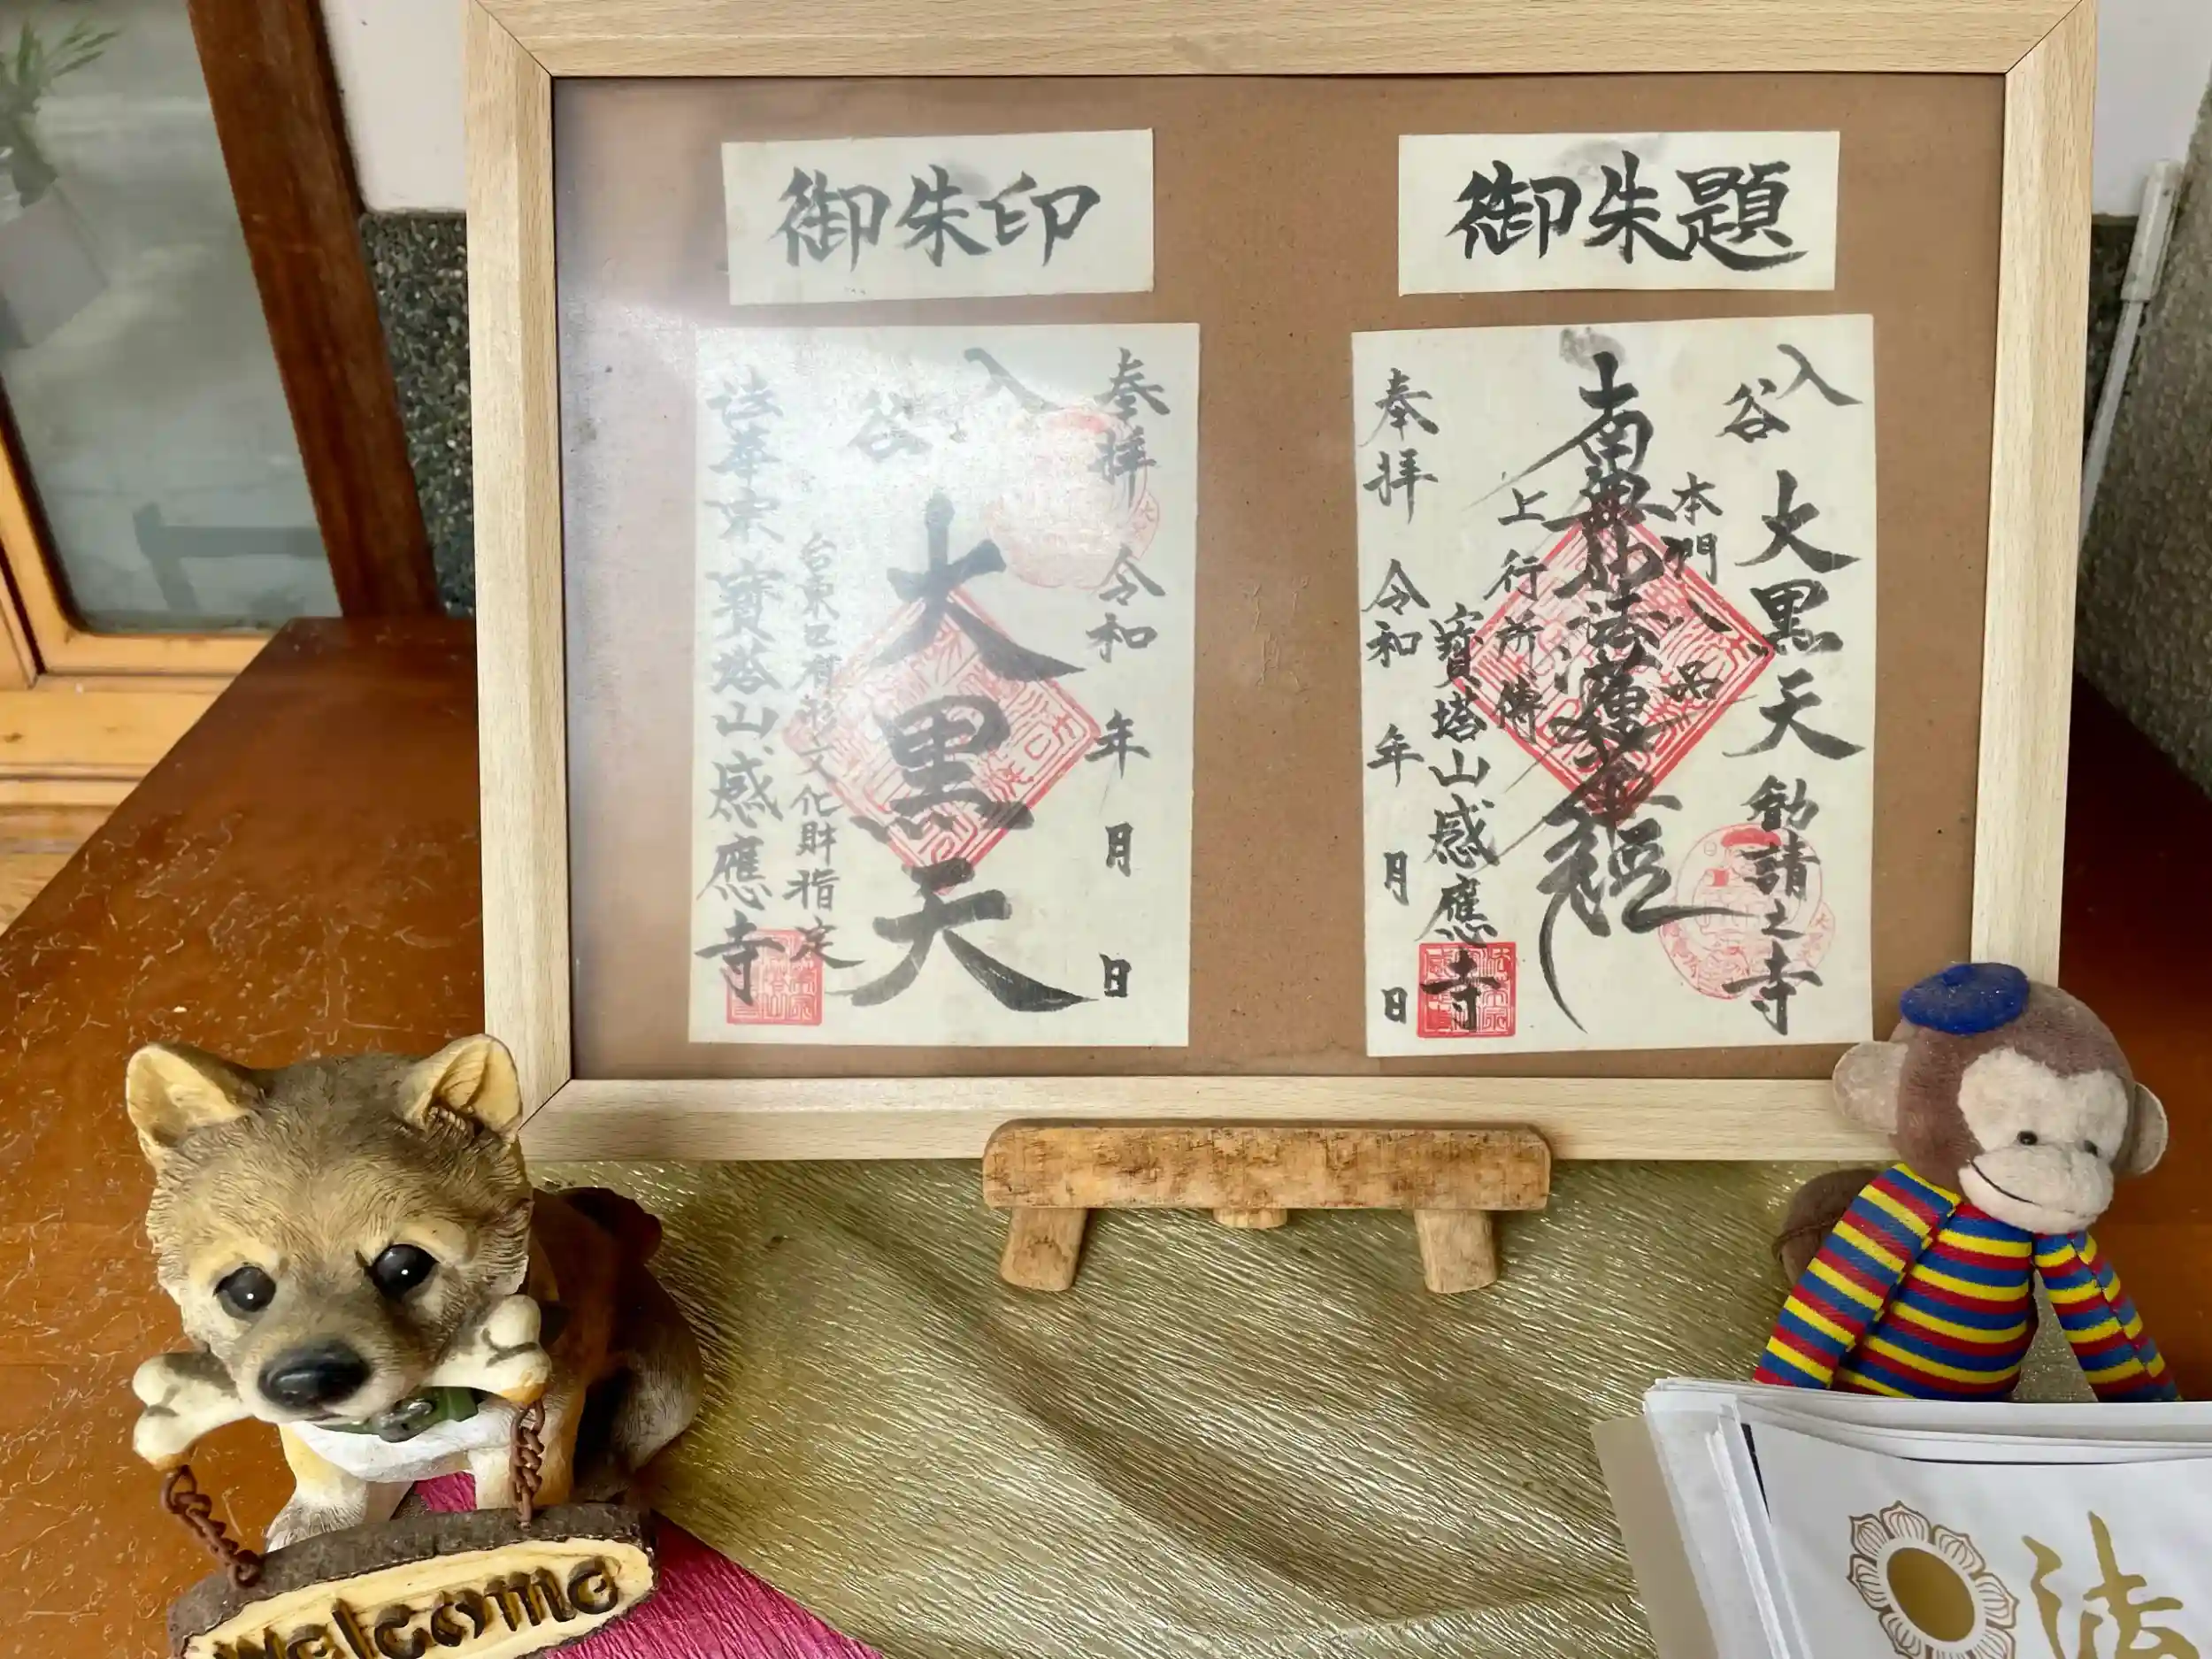 御朱題
入谷
大黒天勧請之寺
本門八品
南無妙法蓮華経
上行所傳
寶塔山感應寺
奉拝 令和 年 月 日
御朱印
奉拝 令和 年 月 日
入谷
大黒天
台東区有形文化財指定
法華宗寶塔山感應寺
Welcome
法